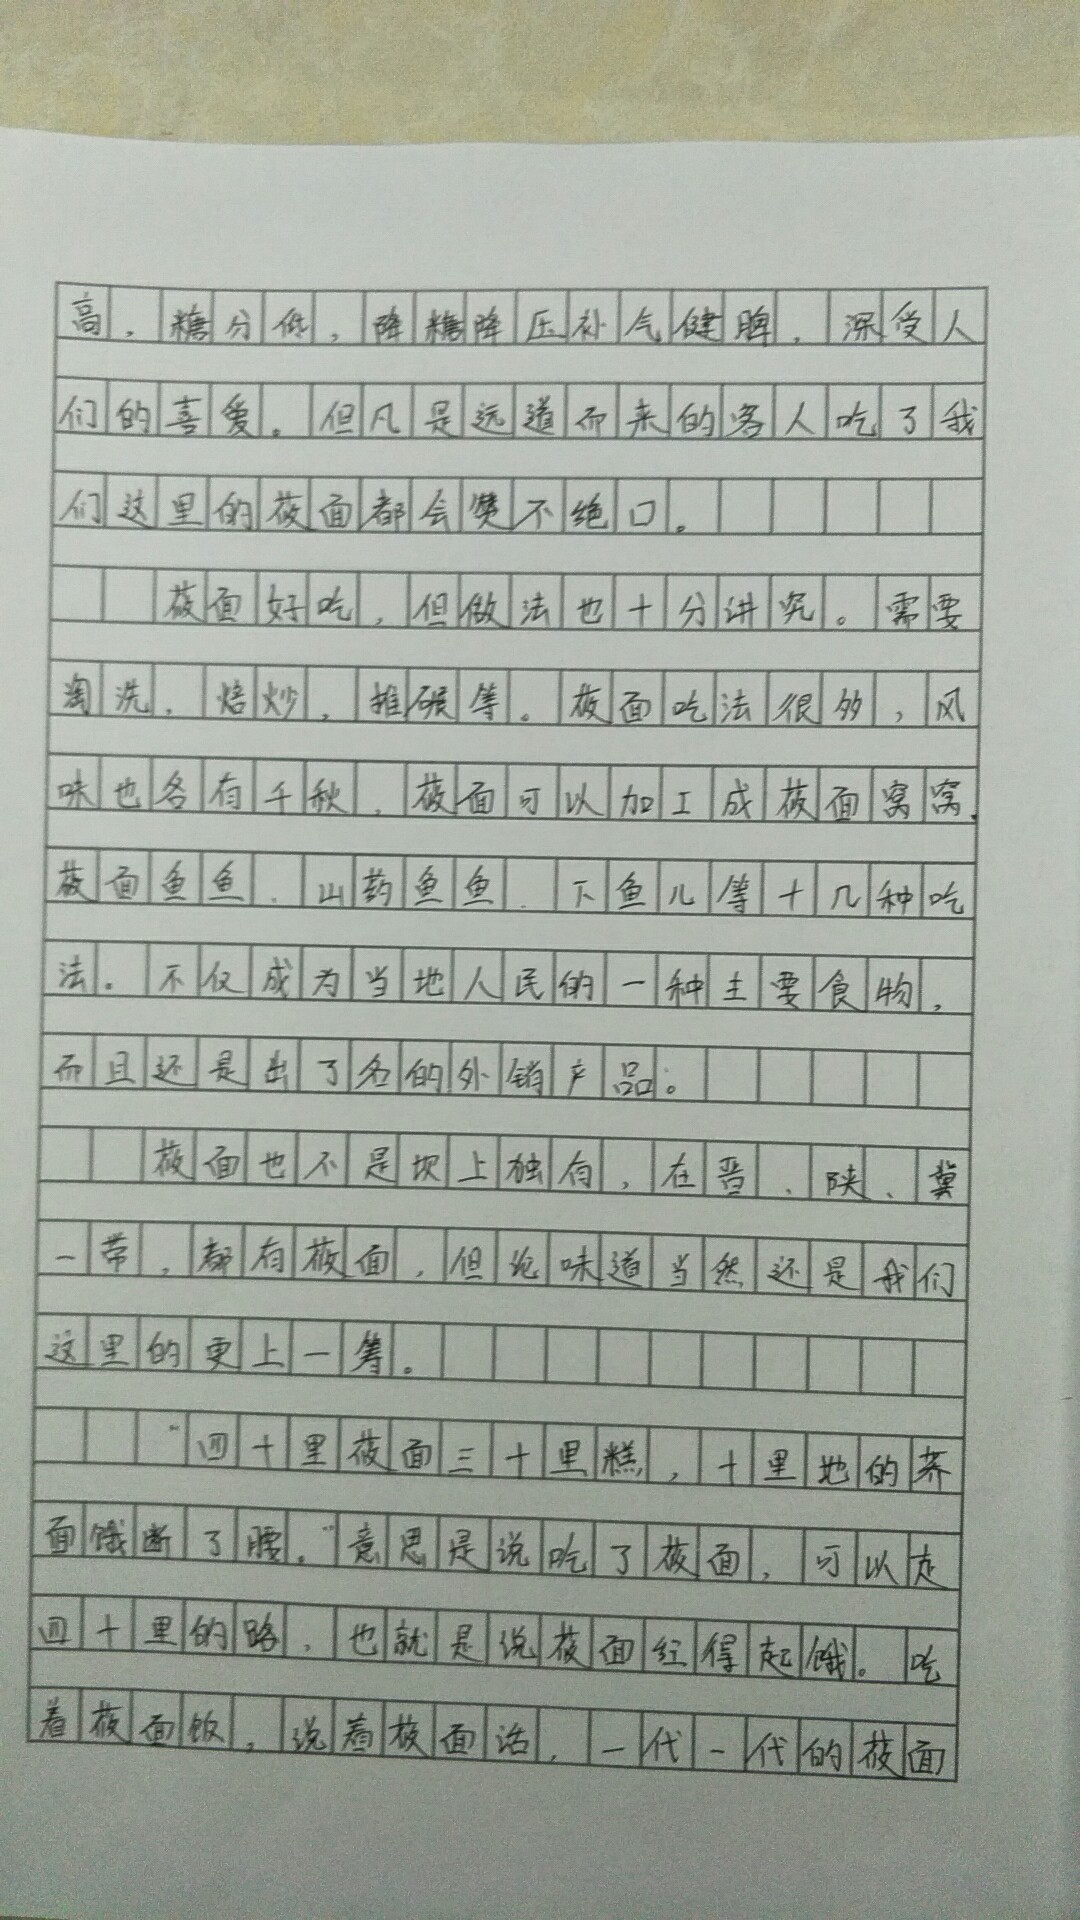 高，糖分低，降糖降压补气健脾，深受人
们的喜爱。但凡是远道而来的客人吃了我
们这里的莜面都会赞不绝口。
莜面好吃，但做法也十分讲究。需要
淘洗，焙炒，推碾等。莜面吃法很多，风
味也各有千秋，莜面可以加工成莜面窝窝、
莜面鱼鱼、山药鱼鱼、下鱼儿等十几种吃
法。不仅成为当地人民的一种主要食物，
而且还是出了名的外销产品。
莜面也不是坝上独有，在晋、陕、冀
一带，都有莜面，但论味道当然还是我们
这里的更上一筹。
“四十里莜面三十里糕，十里地的荞
面饿断了腰。”意思是说吃了莜面，可以走
四十里的路，也就是说莜面经得起饿。吃
着莜面饭，说着莜面话，一代一代的莜面